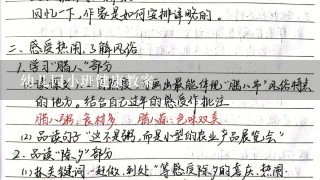 回忆一下,作家是如何安排详略的。
二、感受热闹,了解风俗
1.学习"腊八"部分
画出最能体现"腊八节"风俗特点
的地方。结合自己过年的感受作批注
腊八粥:食材多 腊八蒜:色味双美
(2)品读句子"这不是粥,而是小型的农业产品展览会"
2.品读"除夕"部分
(1)抓关键词"赶做、到处"等感受除夕的喜庆、热闹
幼儿园小班健康教案